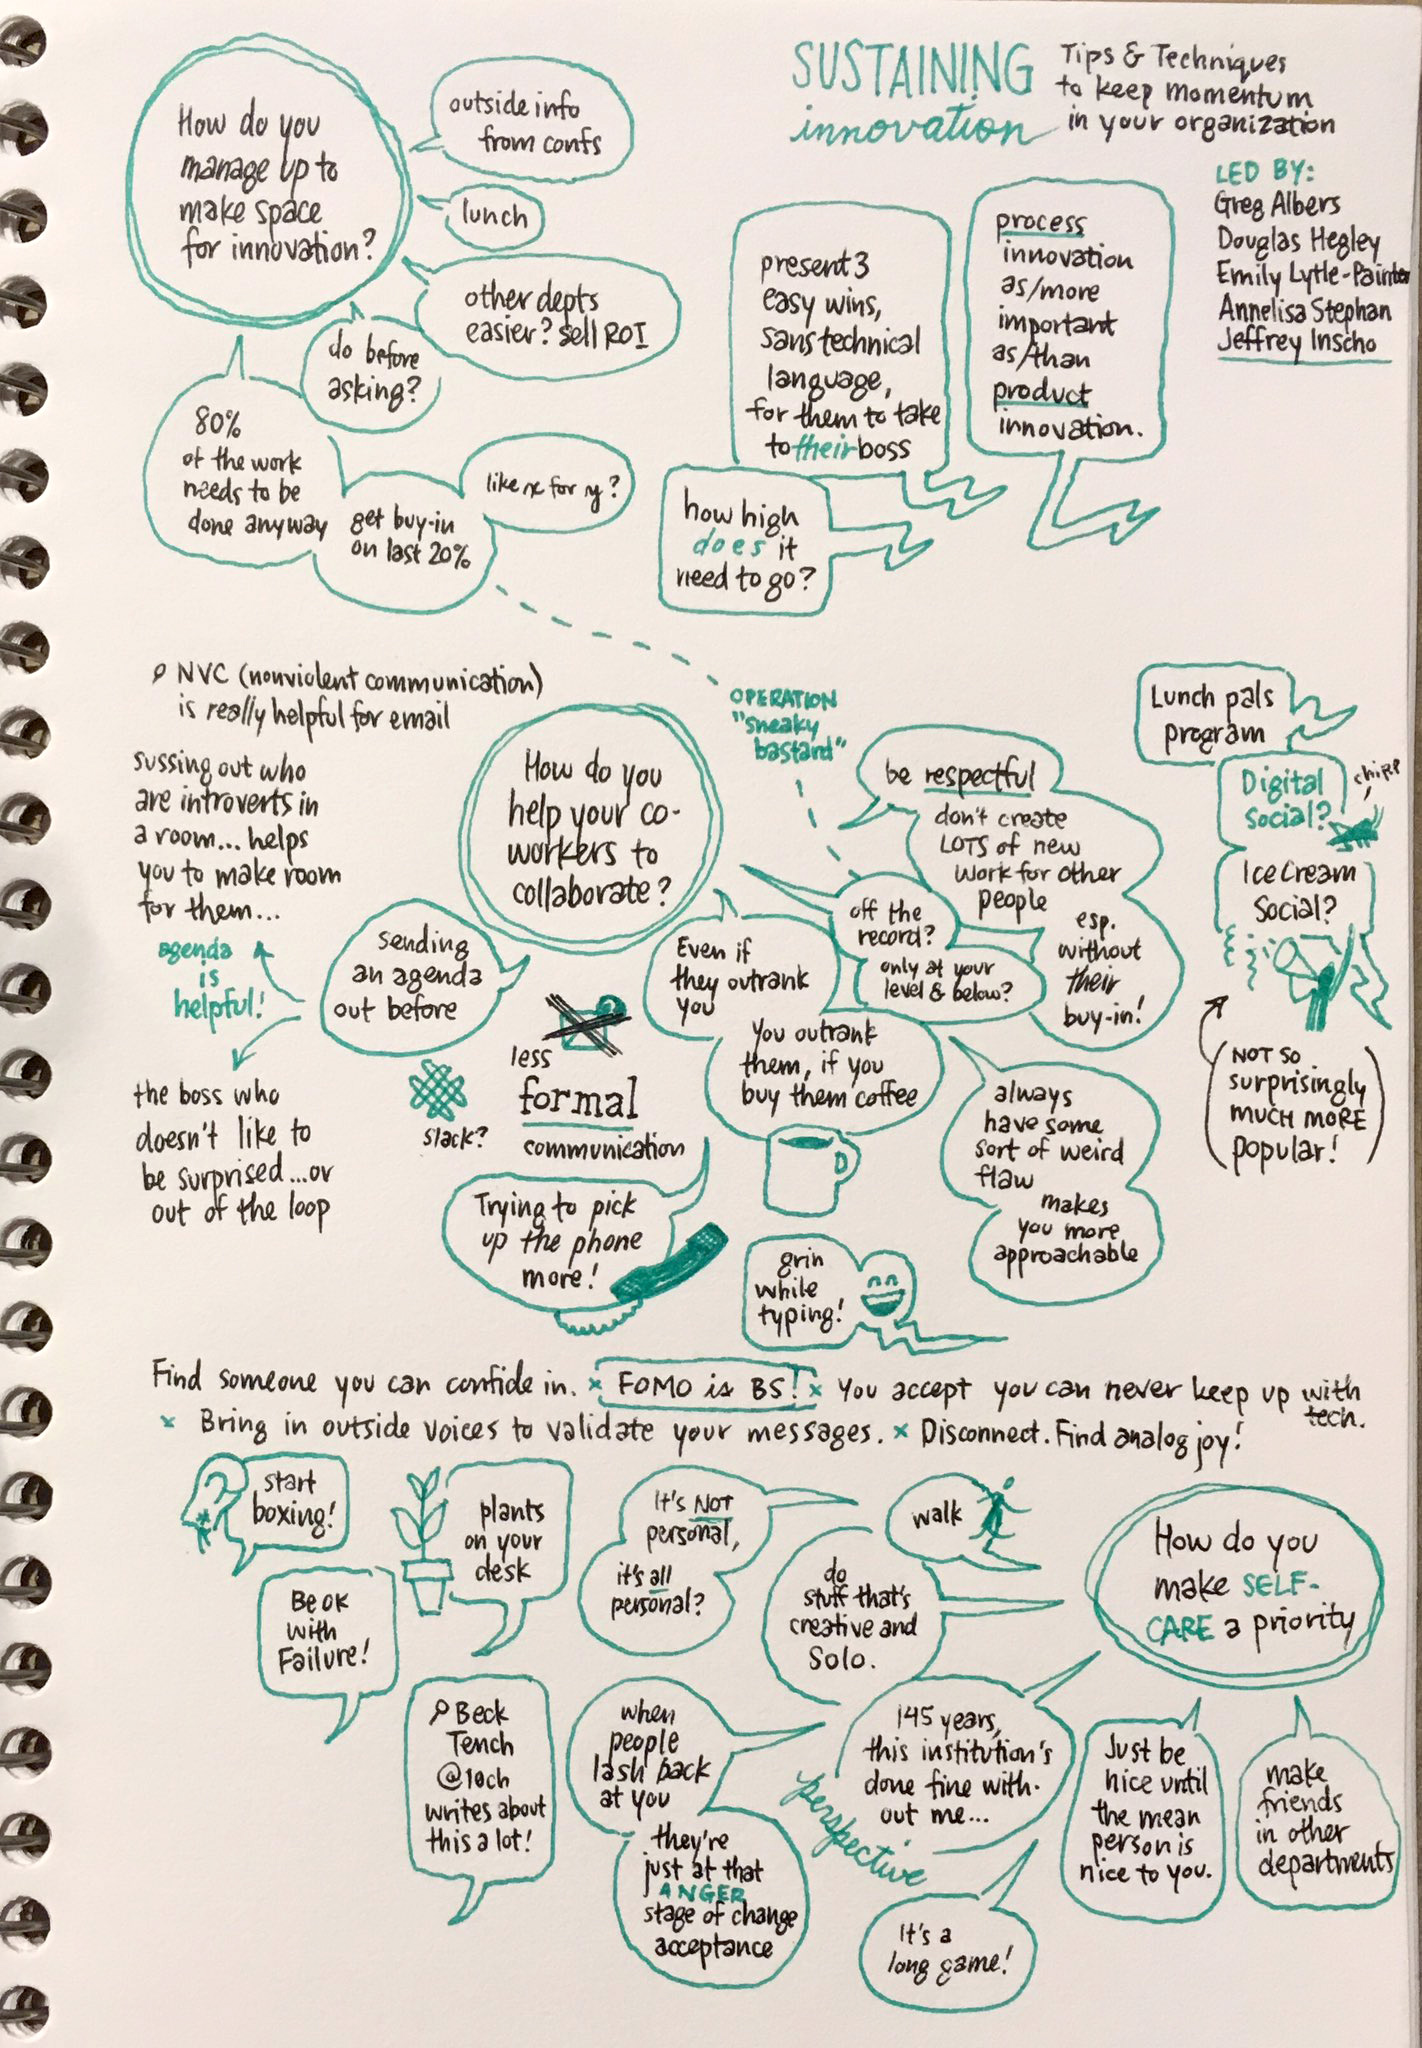 SUSTAINING
innovation
Tips & Techniques
to keep momentum
in your organization
LED BY:
Greg Albers
Douglas Hegley
Emily Lytle-Painter
Annelisa Stephan
Jeffrey Inscho
How do you
manage up to
make space
for innovation?
outside info
from confs
lunch
other depts
easier? sell ROI
do before
asking?
80%
of the work
needs to be
done anyway
get buy-in
on last 20%
like x for y?
present 3
easy wins,
sans technical
language,
for them to take
to their boss
process
innovation
as/more
important
as/than
product
innovation.
how high
does it
need to go?
OPERATION
"sneaky
bastard"
NVC (nonviolent communication)
is really helpful for email
sussing out who
are introverts in
a room... helps
you to make room
for them...
agenda
is
helpful!
the boss who
doesn't like to
be surprised...or
out of the loop
How do you
help your co-
workers to
collaborate?
sending
an agenda
out before
less
formal
communication
slack?
Trying to pick
up the phone
more!
Even if
they outrank
you
you outrank
them, if you
buy them coffee
off the
record?
only at your
level & below?
be respectful
don't create
LOTS of new
work for other
people
esp.
without
their
buy-in!
always
have some
sort of weird
flaw
makes
you more
approachable
grin
while
typing!
Lunch pals
program
Digital
Social?
chirp
Ice Cream
Social?
NOT SO
surprisingly
MUCH MORE
popular!
Find someone you can confide in. x FOMO is BS! x You accept you can never keep up with
tech.
x Bring in outside voices to validate your messages. x Disconnect. Find analog joy!
start
boxing!
plants
on your
desk
It's NOT
personal,
it's all
personal?
walk
do
stuff that's
creative and
Solo.
How do you
make SELF-
CARE a priority
Be OK
with
Failure!
Beck
Tench
@10ch
writes about
this a lot!
when
people
lash back
at you
they're
just at that
ANGER
stage of change
acceptance
145 years,
this institution's
done fine with-
out me...
perspective
It's a
long game!
Just be
nice until
the mean
person is
nice to you.
make
friends
in other
departments